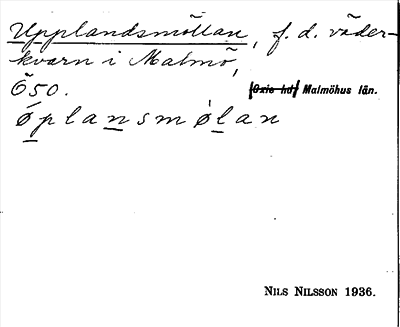 Upplandsmöllan, f. d. väder-
kvarn i Malmö,
Ö50. [Oxie hd] Malmöhus län.
øplansmølan
NILS NILSSON 1936.